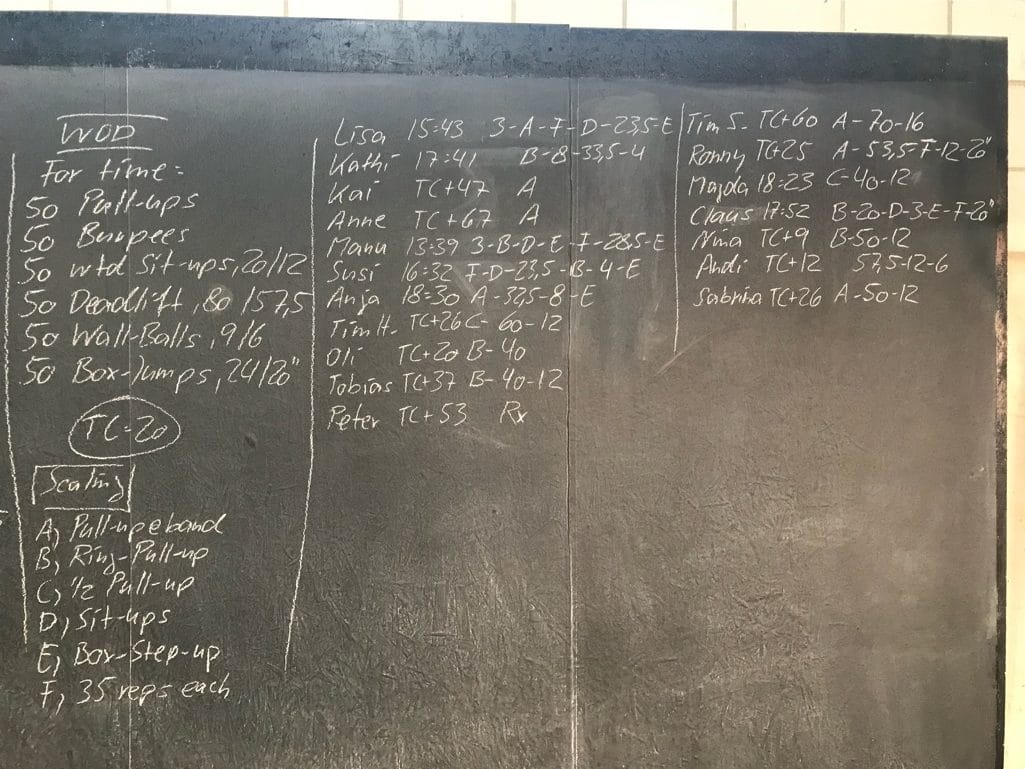 WOD
For time:
50 Pull-ups
50 Burpees
50 wtd Sit-ups, 20/12
50 Deadlift, 80/57,5
50 Wall-Balls, 9/6
50 Box-Jumps, 24/20"
TC=20
Scaling
A, Pull-up e band
B, Ring-Pull-up
C, 1/2 Pull-up
D, Sit-ups
E, Box-Step-up
F, 35 reps each
Lisa 15:43 3-A-F-D-23,5-E
Kathi 17:41 B-8-33,5-4
Kai TC+47 A
Anne TC+67 A
Manu 13:39 3-B-D-E-F-28,5-E
Susi 16:32 F-D-23,5-B-4-E
Anja 18:30 A-32,5-8-E
Tim H. TC+26 C-60-12
Oli TC+20 B-40
Tobias TC+37 B-40-12
Peter TC+53 Rx
Tim S. TC+60 A-70-16
Ronny TC+25 A-53,5-F-12-20"
Majda 18:23 C-40-12
Claus 17:52 B-20-D-3-E-F-20"
Nina TC+9 B-50-12
Andi TC+12 57,5-12-6
Sabrina TC+26 A-50-12